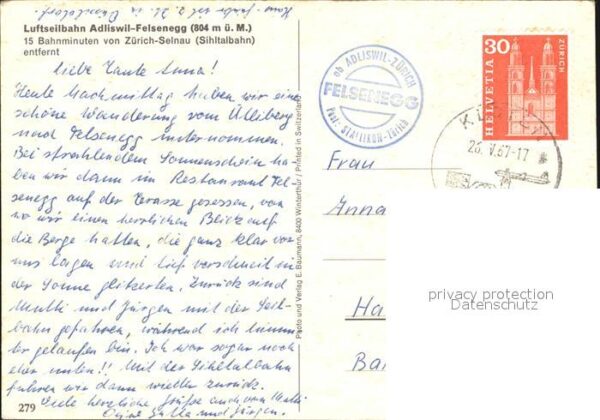 Hans-Günter ist z. Zt. in
Düsseldorf.
Luftseilbahn Adliswil-Felsenegg (804 m ü. M.)
15 Bahnminuten von Zürich-Selnau (Sihltalbahn)
entfernt
Liebe Tante Anna!
Heute Nachmittag haben wir eine
schöne Wanderung vom Ütliberg
nach Felsenegg unternommen.
Bei strahlendem Sonnenschein ha-
ben wir dann im Restaurant Fel-
senegg auf der Terasse gesessen, von
wo wir einen herrlichen Blick auf
die Berge hatten, die ganz klar vor
uns lagen und tief verschneit in
der Sonne glitzerten. Zurück sind
Mutti und Jürgen mit der Seil-
bahn gefahren, während ich hinun-
ter gelaufen bin. Ich war sogar noch
eher unten!! Mit der Sihltalbahn
fuhren wir dann wieder zurück.
Viele herzliche Grüße auch von Mutti
und Jürgen.
279
Photo und Verlag E. Baumann, 8400 Winterthur / Printed in Switzerland
ob ADLISWIL-ZÜRICH
FELSENEGG
Post: STALLIKON-Zürich
30
HELVETIA
ZÜRICH
26.V.67-17
Frau
Anna
Ha
Ba
privacy protection
Datenschutz